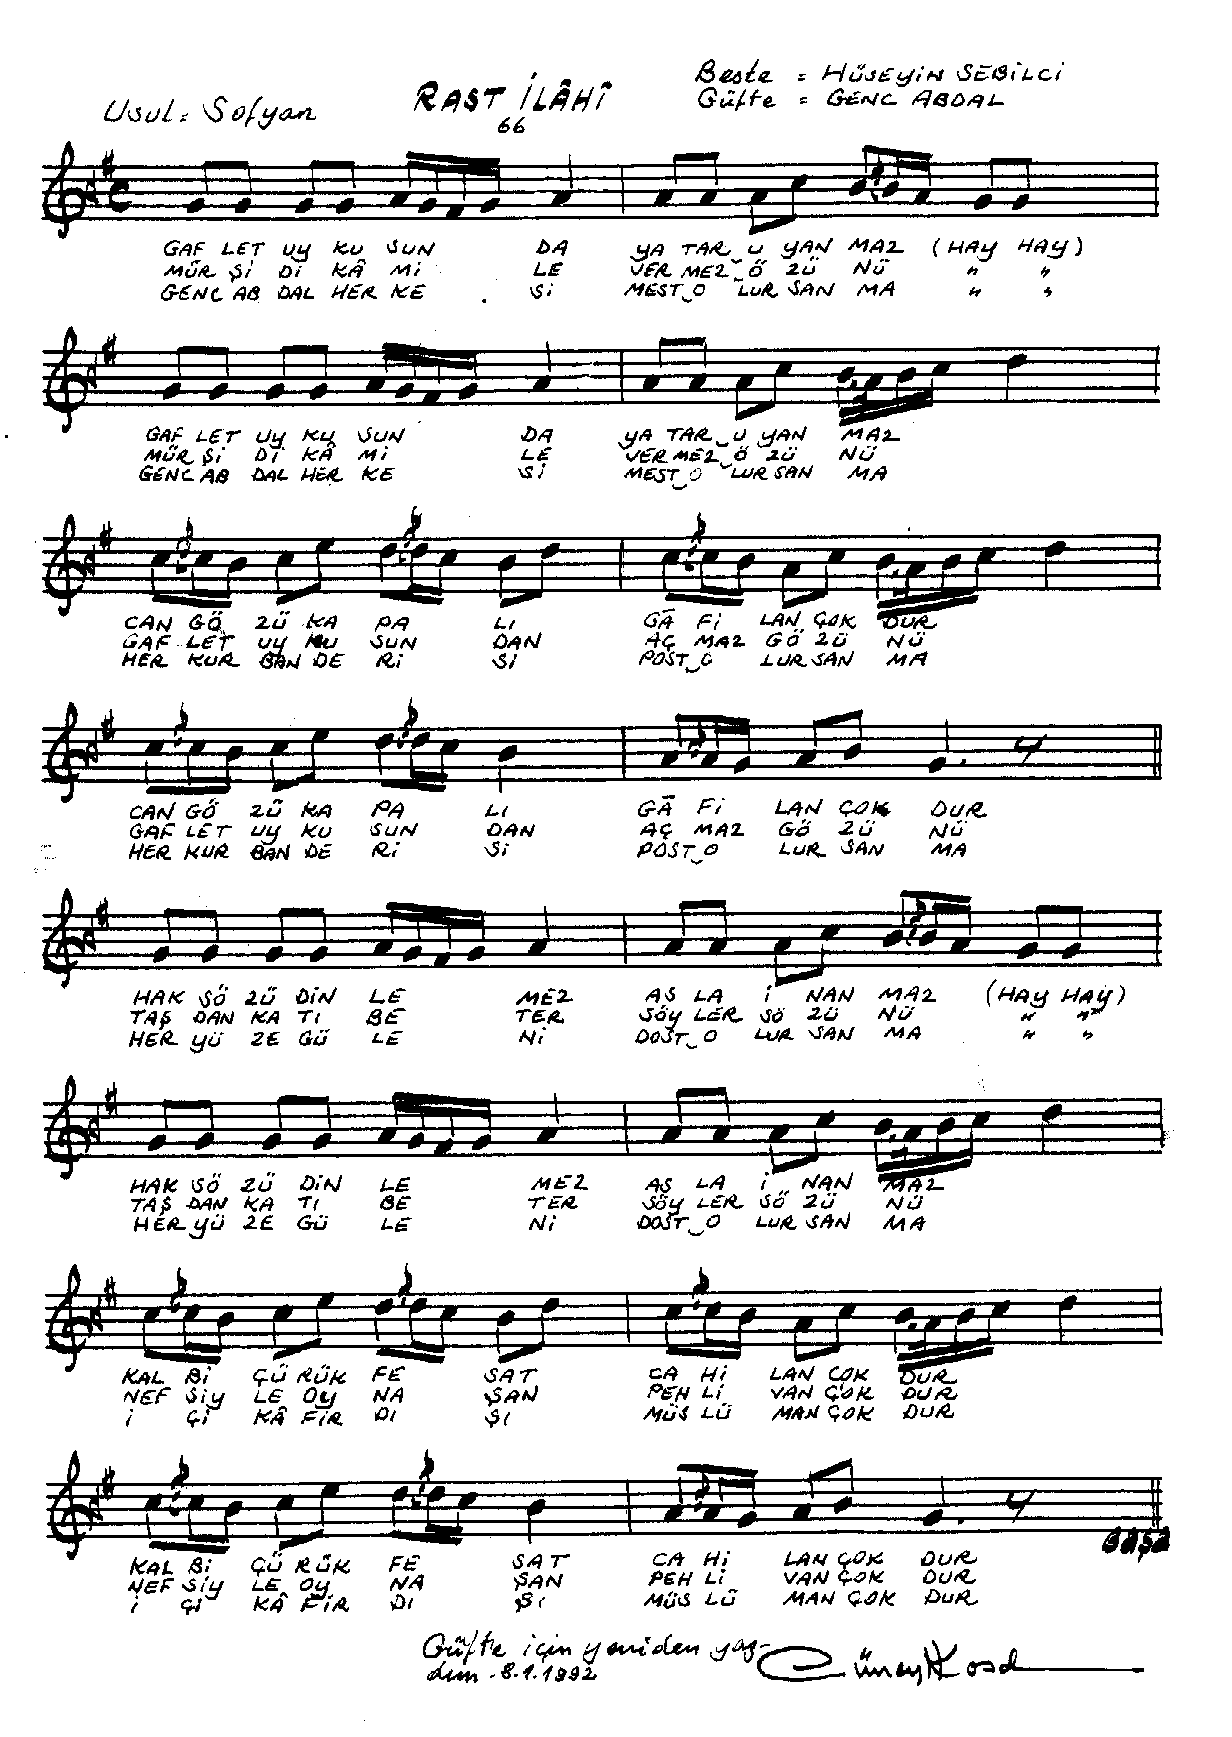 Beste = HÜSEYİN SEBİLCİ
Usul = Sofyan RAST İLÂHÎ Güfte = GENC ABDAL
66
GAF LET UY KU SUN DA YA TAR U YAN MAZ (HAY HAY)
MÜR Şİ Dİ KÂ Mİ LE VER MEZ Ö ZÜ NÜ " "
GENC AB DAL HER KE Sİ MEST O LUR SAN MA " "
GAF LET UY KU SUN DA YA TAR U YAN MAZ
MÜR Şİ Dİ KÂ Mİ LE VER MEZ Ö ZÜ NÜ
GENC AB DAL HER KE Sİ MEST O LUR SAN MA
CAN GÖ ZÜ KA PA LI GÂ Fİ LAN ÇOK DUR
GAF LET UY KU SUN DAN AÇ MAZ GÖ ZÜ NÜ
HER KUR BAN DE Rİ Sİ POST O LUR SAN MA
CAN GÖ ZÜ KA PA LI GÂ Fİ LAN ÇOK DUR
GAF LET UY KU SUN DAN AÇ MAZ GÖ ZÜ NÜ
HER KUR BAN DE Rİ Sİ POST O LUR SAN MA
HAK SÖ ZÜ DİN LE MEZ AS LA İ NAN MAZ (HAY HAY)
TAŞ DAN KA TI BE TER SÖY LER SÖ ZÜ NÜ " "
HER YÜ ZE GÜ LE Nİ DOST O LUR SAN MA " "
HAK SÖ ZÜ DİN LE MEZ AS LA İ NAN MAZ
TAŞ DAN KA TI BE TER SÖY LER SÖ ZÜ NÜ
HER YÜ ZE GÜ LE Nİ DOST O LUR SAN MA
KAL Bİ ÇÜ RÜK FE SAT CA Hİ LAN ÇOK DUR
NEF SİY LE OY NA ŞAN PEH Lİ VAN ÇOK DUR
İ Çİ KÂ FİR DI ŞI MÜS LÜ MAN ÇOK DUR
KAL Bİ ÇÜ RÜK FE SAT CA Hİ LAN ÇOK DUR
NEF SİY LE OY NA ŞAN PEH Lİ VAN ÇOK DUR
İ Çİ KÂ FİR DI ŞI MÜS LÜ MAN ÇOK DUR
BAŞA
Güfte için yeniden yaz-
dım -8.1.1992